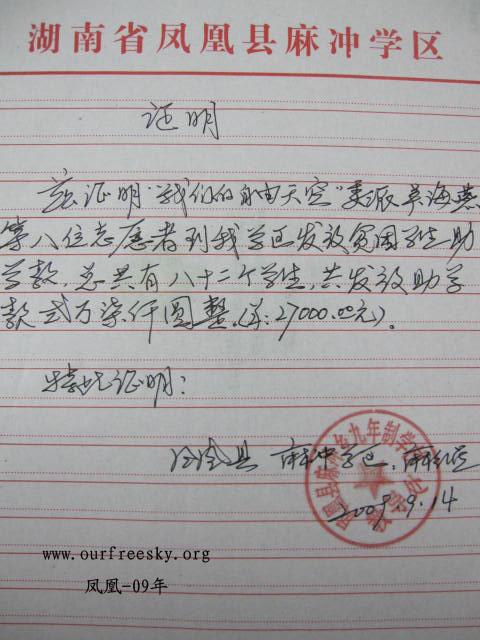 湖南省凤凰县麻冲学区
证明
兹证明"我们的自由天空"委派单海燕
等八位志愿者到我学区发放贫困学生助
学款，总共有八十二个学生，共发放助学
款弍万柒仟圆整。(￥:27000.00元)。
特此证明：
凤凰县 麻冲学区
2009.9.14
www.ourfreesky.org
凤凰-09年